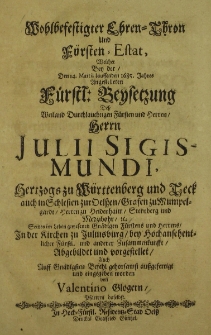 Wohlbefestigter Ehren-Thron
Und
Fürsten-Estat,
Welcher
Bey der/
Den 14. Martii lauffenden 1685. Jahres
Angestelleten
Fürstl: Beysetzung
Deß
Weiland Durchlauchtigen Fürsten und Herren/
Herrn
JULII SIGIS-
MUNDI,
Hertzogs zu Württenberg und Teck
auch in Schlesien zur Oelßen/ Grafen zu Mümpel-
gardt/ Herrn zu Heidenheim/ Sternberg und
Medzibohr/ ꝛc.
In der Kirchen zu Juliusburg/ bey Hochansehnt-
licher Fürstl. und anderer Zusammenkunfft/
Abgebildet und vorgestellet/
Auch
Auff Gnädigsten Befehl gehorsamst außgefertiget
und eingegeben worden
von
Valentino Glogern/